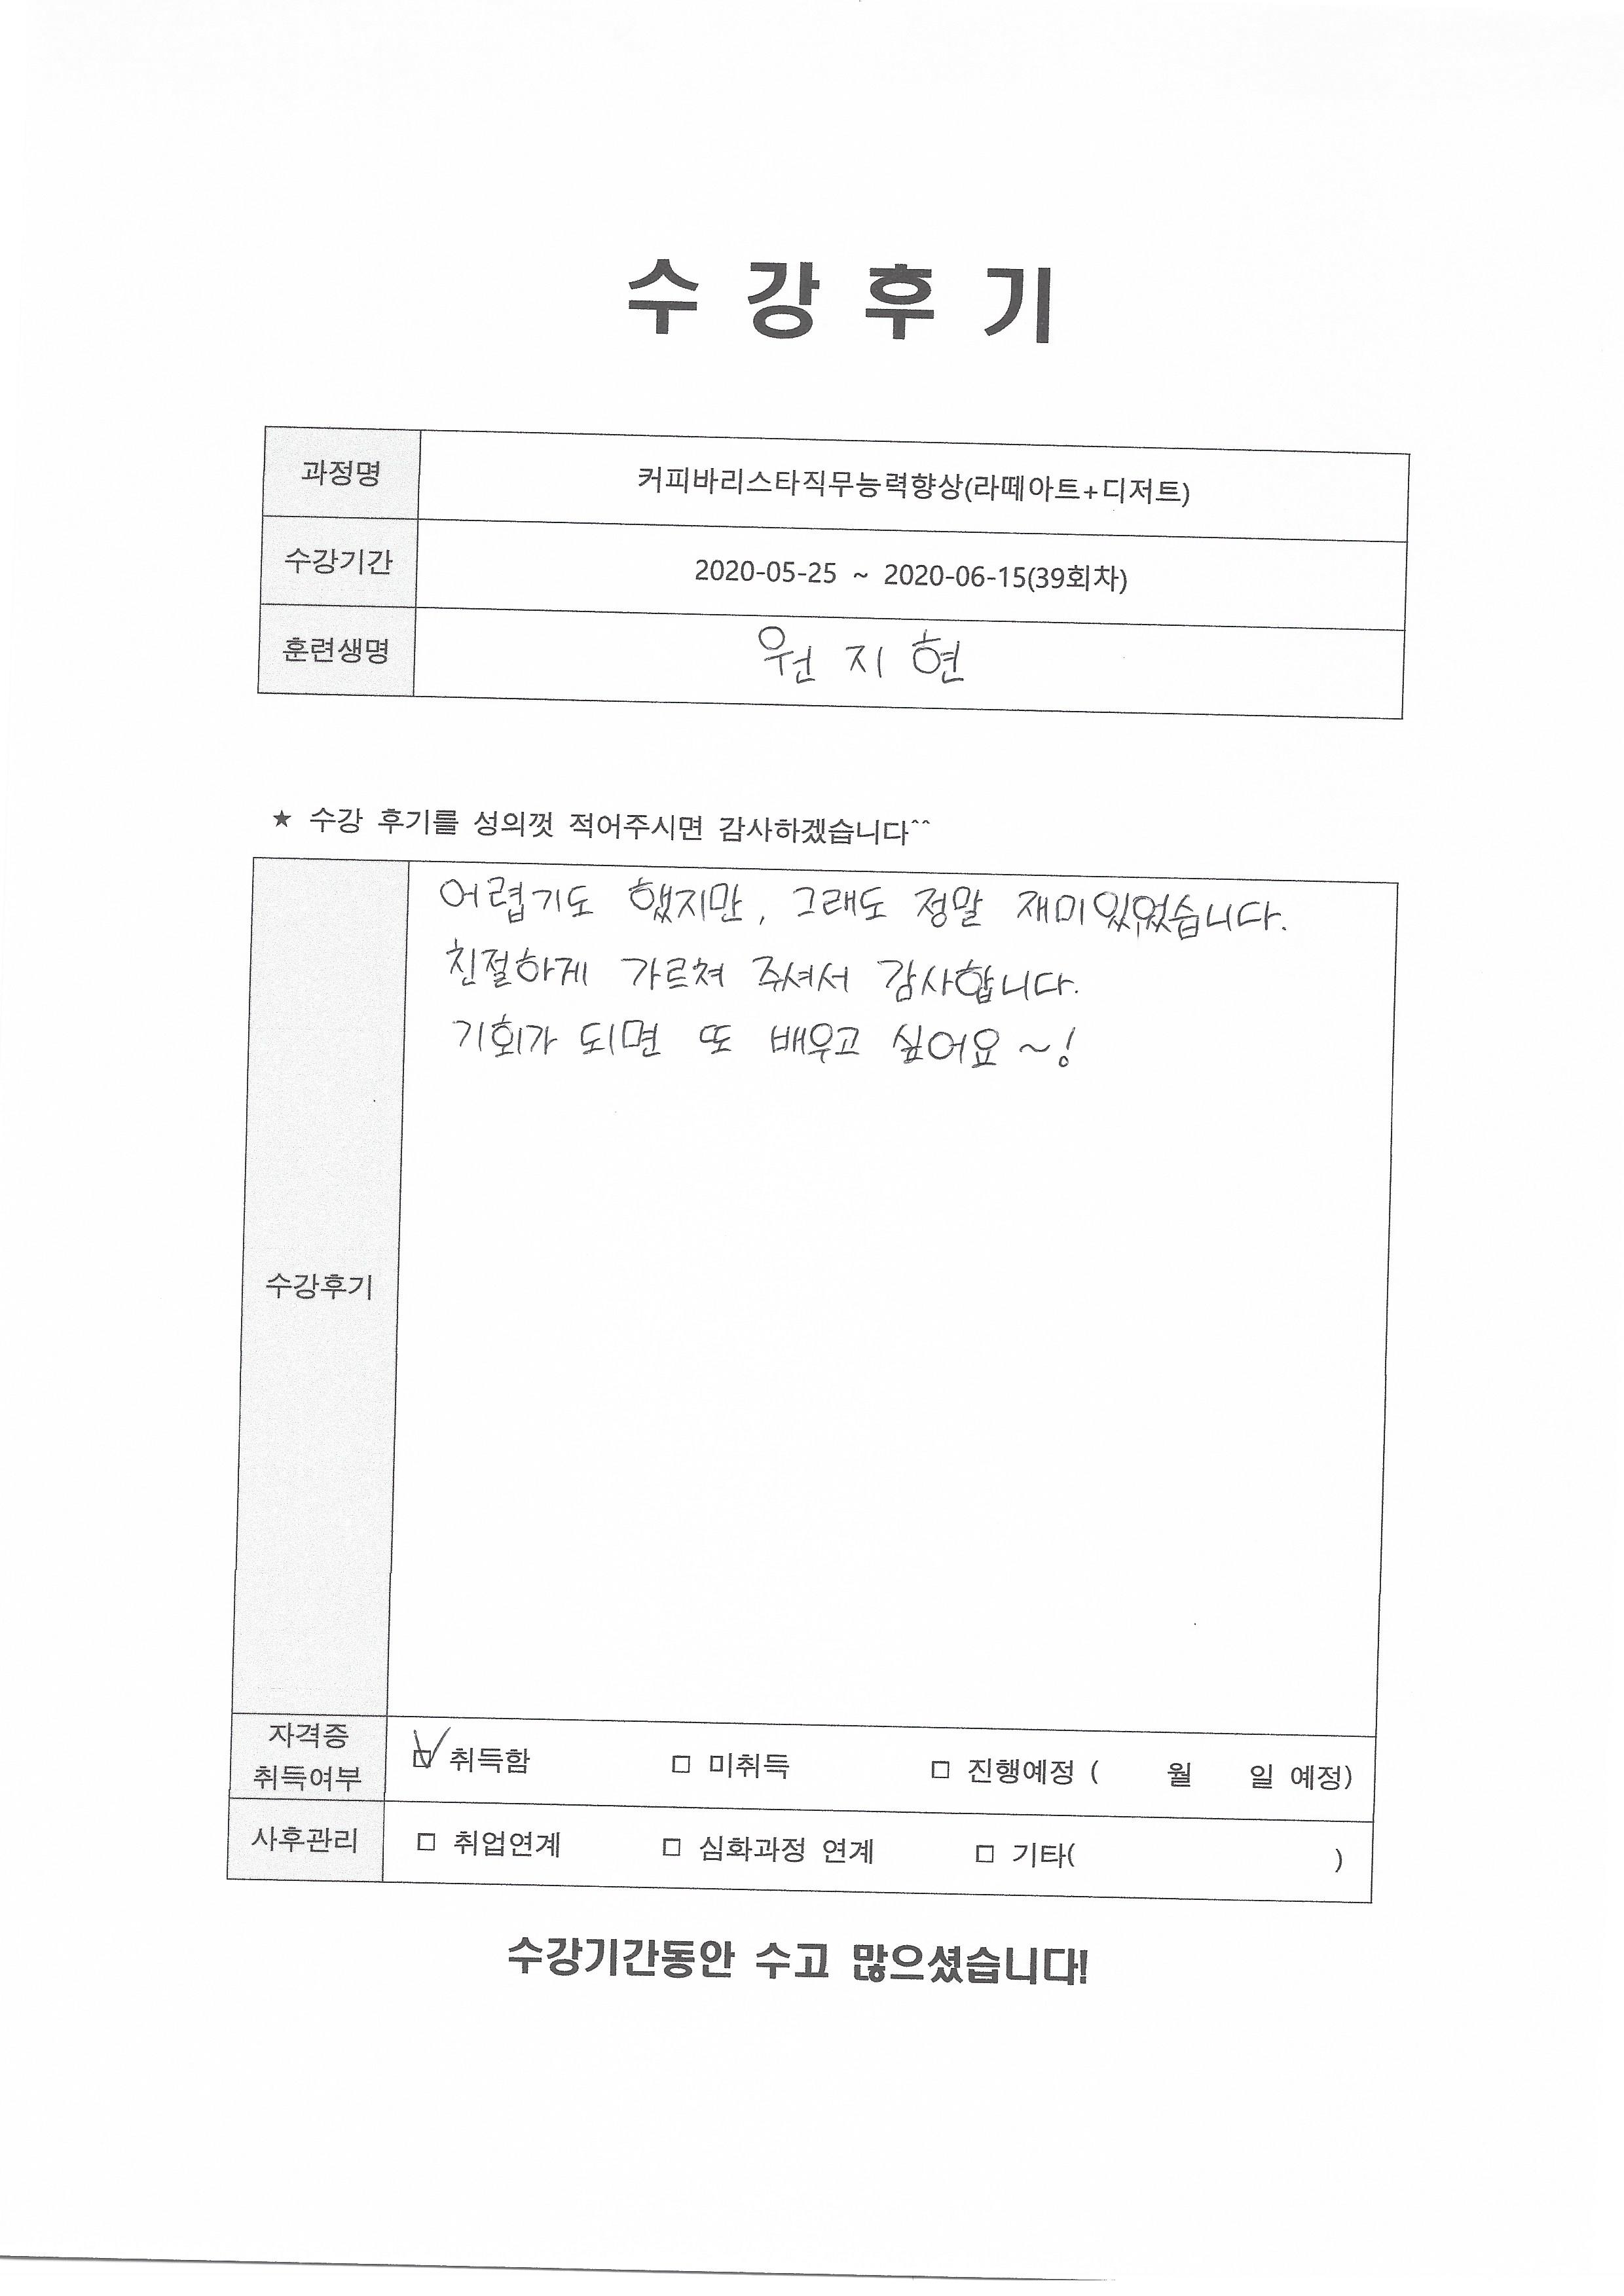 수강후기
과정명 커피바리스타직무능력향상(라떼아트+디저트)
수강기간 2020-05-25 ~ 2020-06-15(39회차)
훈련생명 원지현
★ 수강 후기를 성의껏 적어주시면 감사하겠습니다^^
어렵기도 했지만, 그래도 정말 재미있었습니다.
친절하게 가르쳐 주셔서 감사합니다.
기회가 되면 또 배우고 싶어요~!
수강후기
자격증
취득여부
☑ 취득함 □ 미취득 □ 진행예정 ( 월 일 예정)
사후관리 □ 취업연계 □ 심화과정 연계 □ 기타( )
수강기간동안 수고 많으셨습니다!